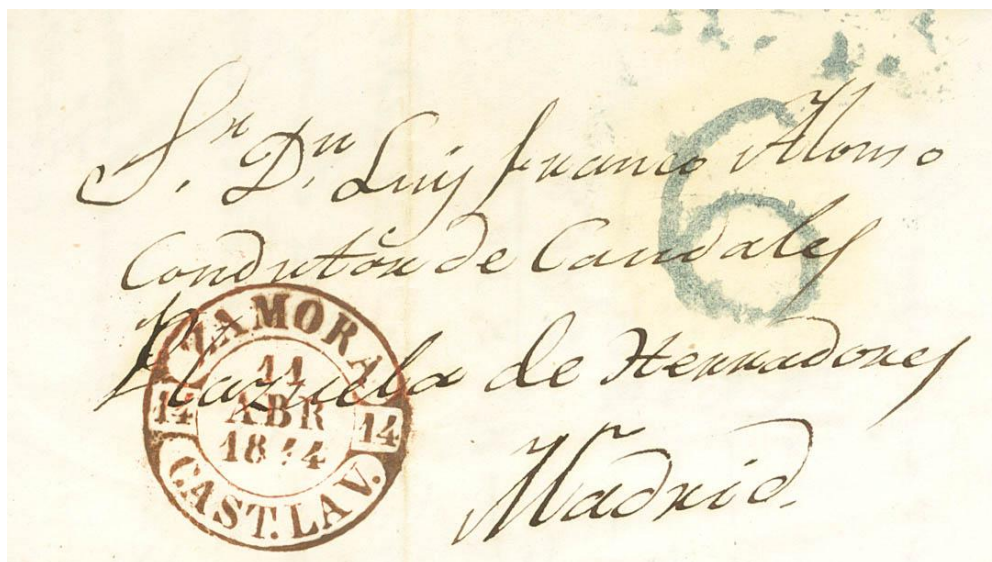 6
Sr. Dn. Luis franco Alonso
Condutór de Caudales
Plazuela de Herradores
Madrid.
ZAMORA
14 11 14
ABR
1844
CAST. LA V.